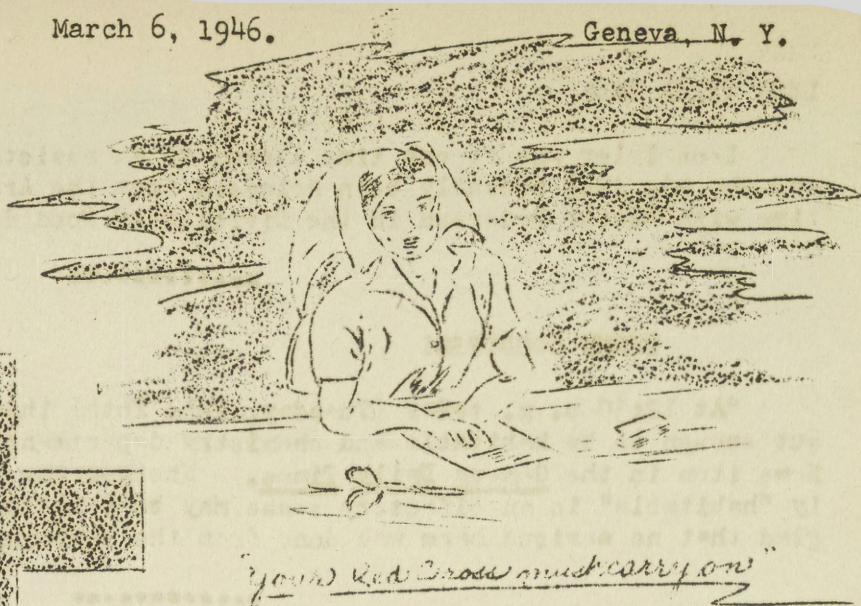 March 6, 1946. Geneva, N. Y.
"Your Red Cross must carry on"